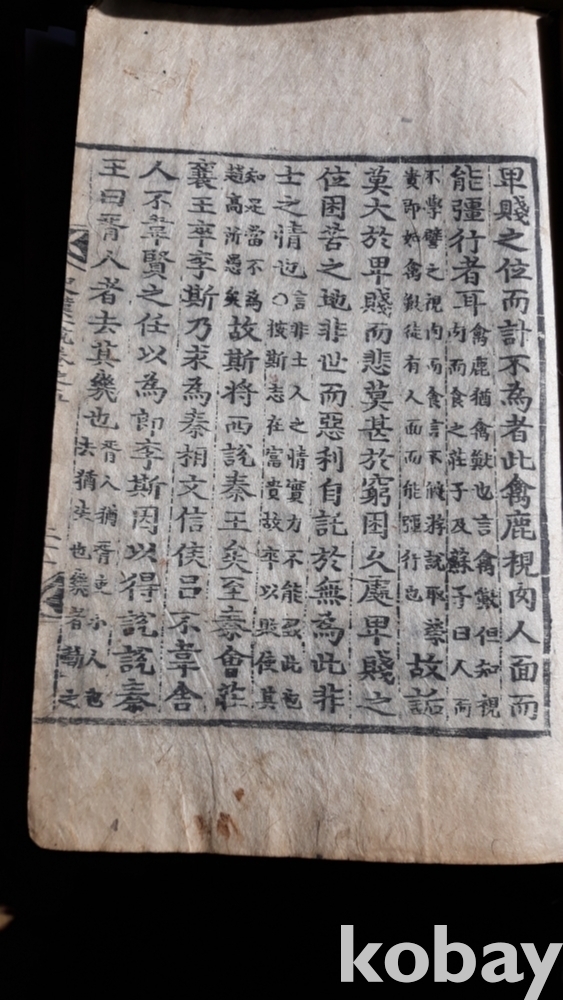 卑賤之位而計不為者此禽鹿視肉人面而
能彊行者耳禽鹿猶禽獸也言禽獸但知視
肉而食之莊子及蘇子曰人而
不學譬之視肉而食言不能游說取榮
貴即如禽獸徒有人面而能彊行也故詬
莫大於卑賤而悲莫甚於窮困久處卑賤之
位困苦之地非世而惡利自託於無為此非
士之情也○言非士人之情實力不能致此也
彼斯志在富貴故卒以使其
知是當不為
趙高所愚矣故斯將西說秦王矣至秦會莊
襄王卒李斯乃求為秦相文信侯呂不韋舍
人不韋賢之任以為郎李斯因以得說說秦
王曰胥人者去其幾也胥人猶胥吏小人也
去猶失也幾者動之
卷之五
kobay